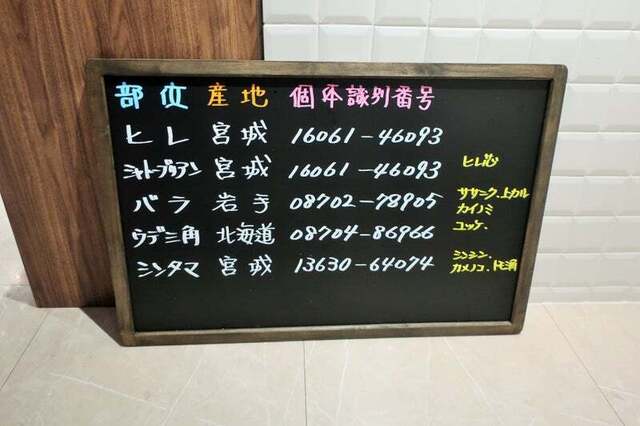 部位 産地 個体識別番号
ヒレ 宮城 16061-46093
シャトーブリアン 宮城 16061-46093 ヒレ芯
バラ 岩手 08702-78905 ササニク.上カル
カイノミ
ユッケ.
ウデ三角 北海道 08704-86966
シンタマ 宮城 13630-64074 シンシン.
カメノコ.トモ三角